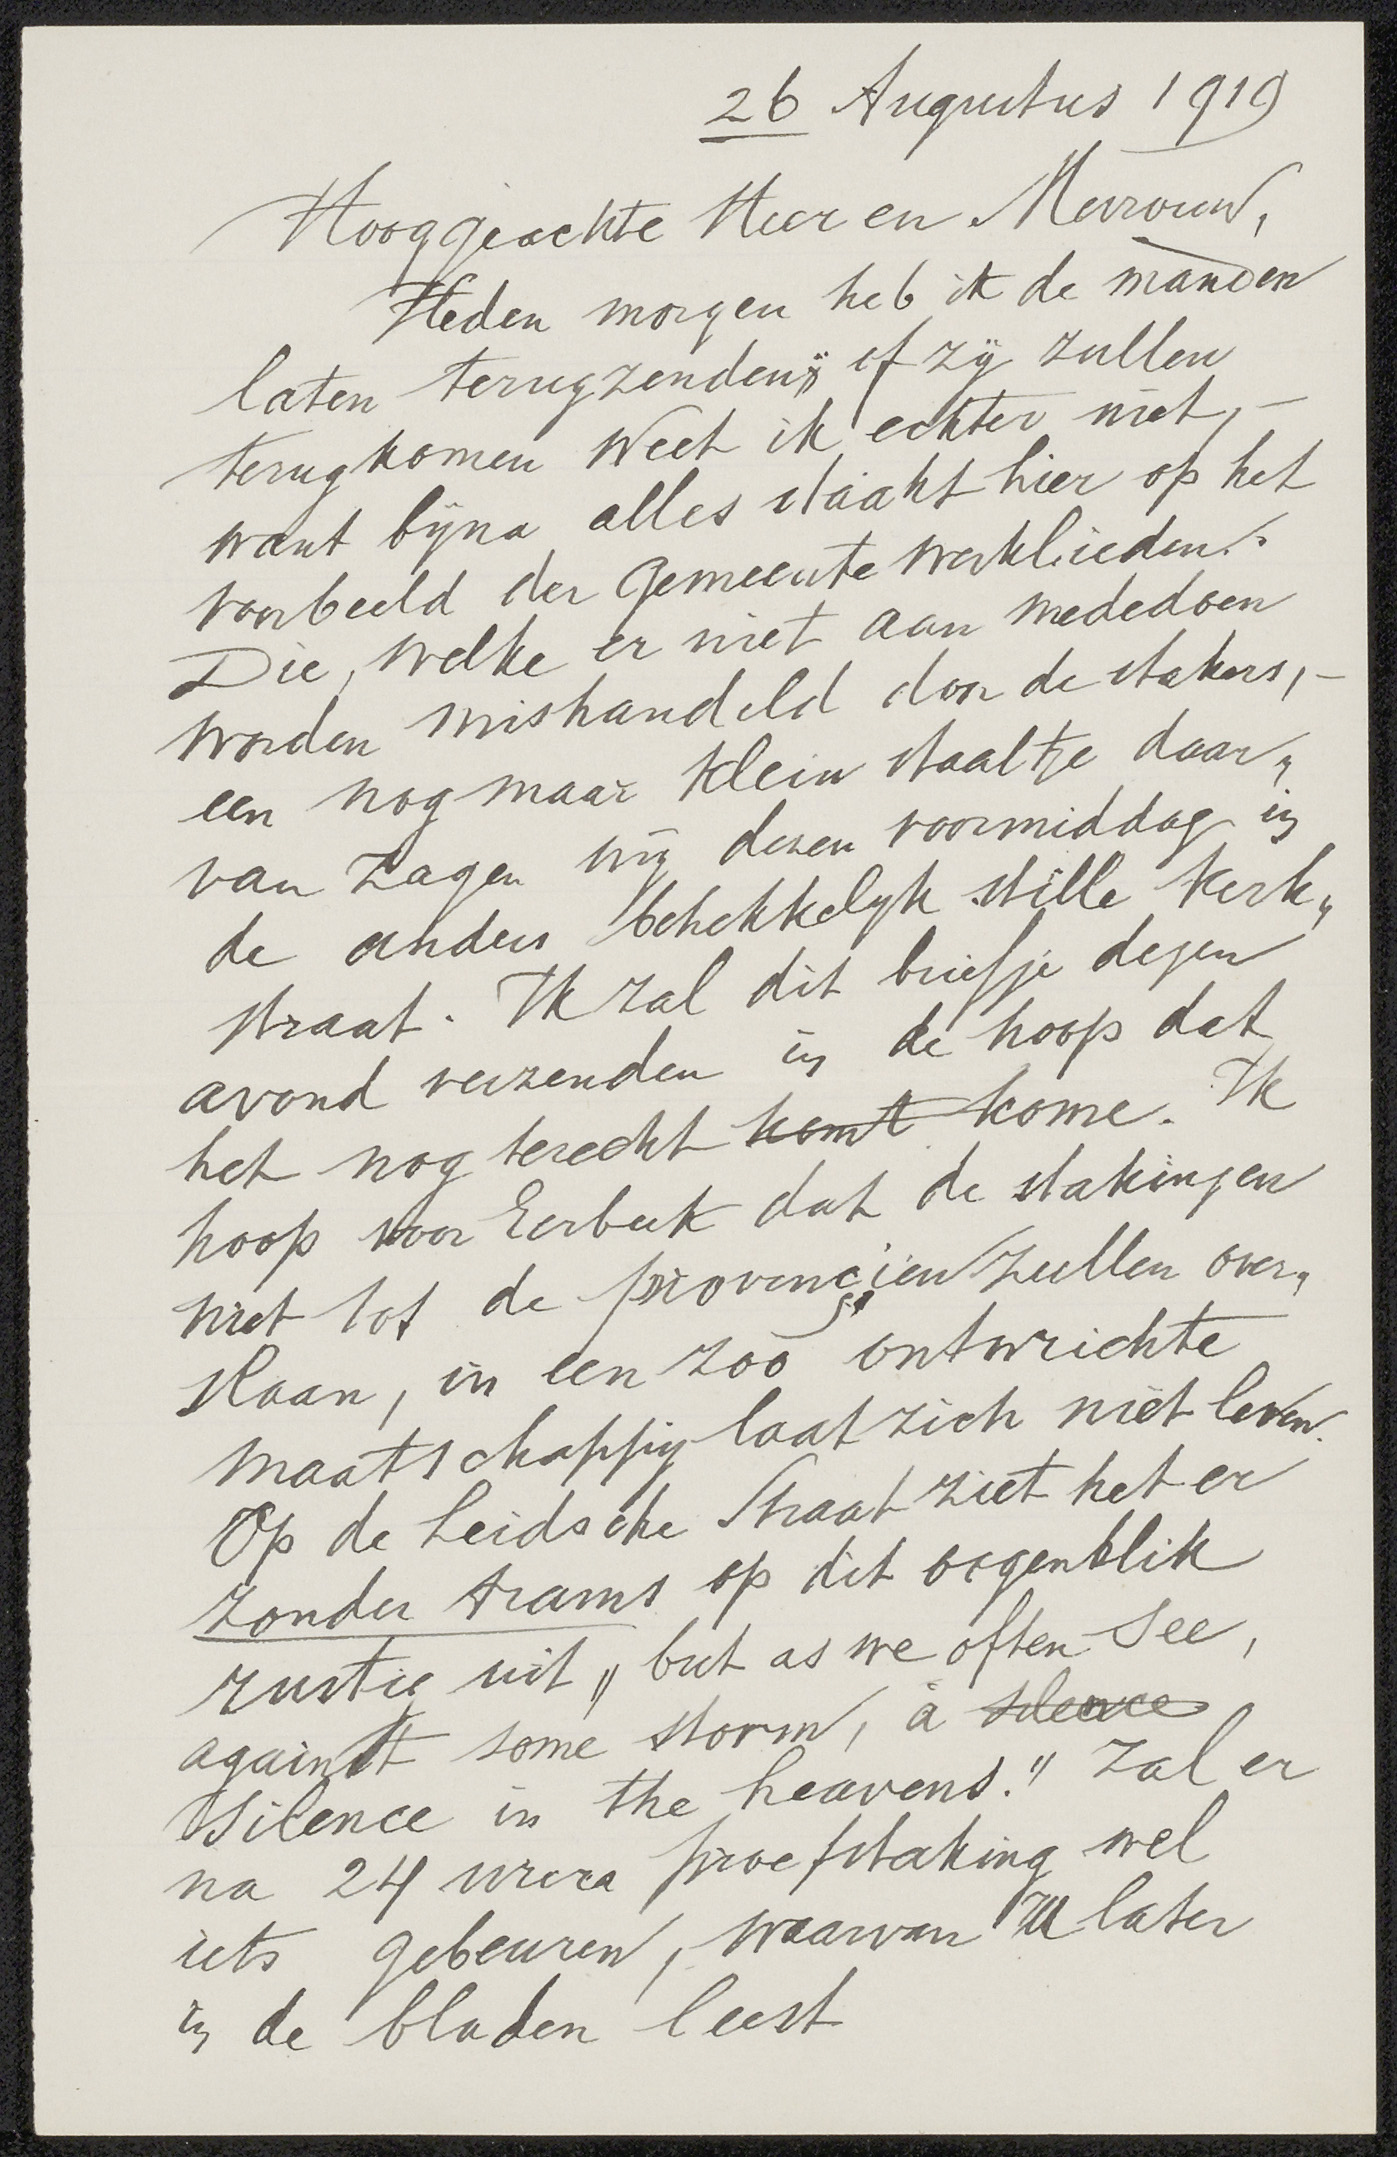 26 Augustus 1919
Hooggeachte Heer en Mevrouw,
Heden morgen heb ik de manden
laten terugzenden; of zij zullen
terugkomen weet ik echter niet, –
want bijna alles staakt hier op het
voorbeeld der Gemeente werklieden.
Die, welke er niet aan mededoen
worden mishandeld door de stakers, –
een nog maar klein staaltje daar„
van zagen wij dezen voormiddag in
de anders betrekkelijk stille Kerk„
straat. Ik zal dit briefje dezen
avond verzenden in de hoop dat
het nog terecht komt kome. Ik
hoop voor Eerbeek dat de stakingen
niet tot de provinciën zullen over„
slaan, in een zoo ontwrichte
maatschappij laat zich niet leven.
Op de Leidsche Straat ziet het er
zonder trams op dit oogenblik
rustig uit „but as we often see,
against some storm, a
silence in the heavens." Zal er
na 24 uren proefstaking wel
iets gebeuren, waarvan U later
in de bladen leest